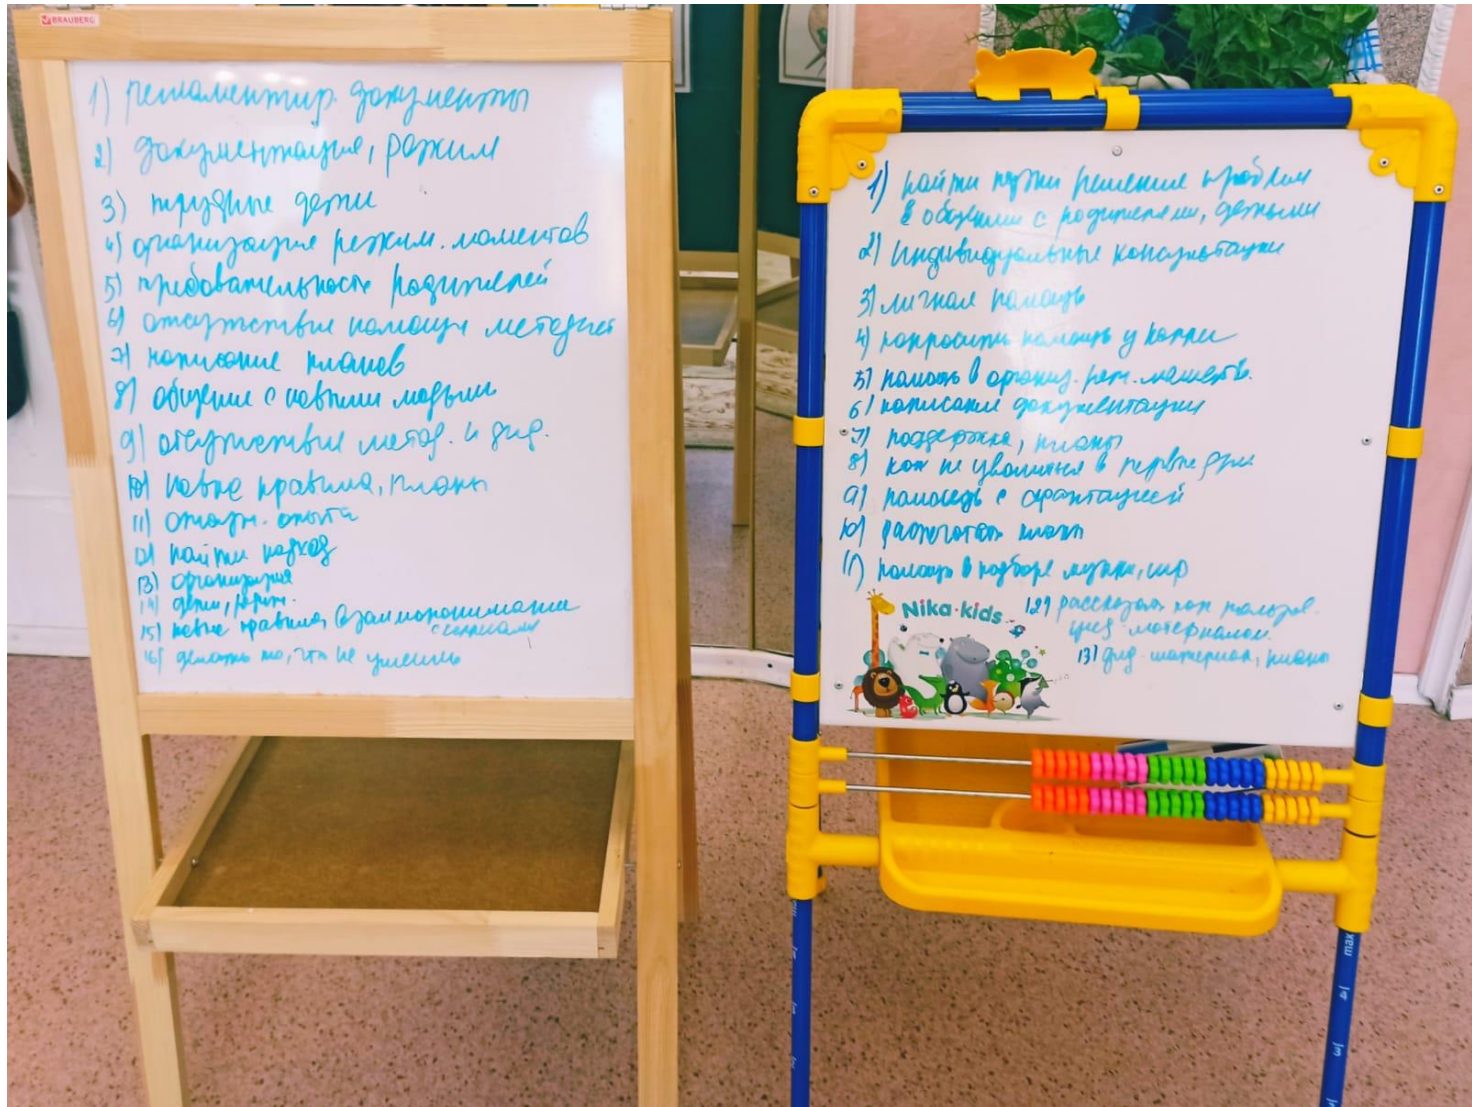 BRAUBERG
1) регламентир. документы
2) документация, режим
3) трудные дети
4) организация режим. моментов
5) требовательность родителей
6) отсутствие помощи методист
7) написание планов
8) общение с новыми людьми
9) отсутствие метод. и дид.
10) новые правила, планы
11) отсут. опыта
12) найти подход
13) организация
14) дети,
15) новые правила, взаимопонимание
16) делать то, что не умеешь
1) найти пути решения проблем
в общении с родителями, детьми
2) индивидуальные консультации
3) личная помощь
4) попросить помощь у коллег
5) помощь в организ. реж. моментов.
6) написание документации
7) поддержка, планы
8) как не уволиться в первые дни
9) помощь с адаптацией
10) распечатать планы
11) помощь в подборе музыки, игр
Nika-kids
12) рассказать как пользов.
материалом
13) дид. материал, планы
max